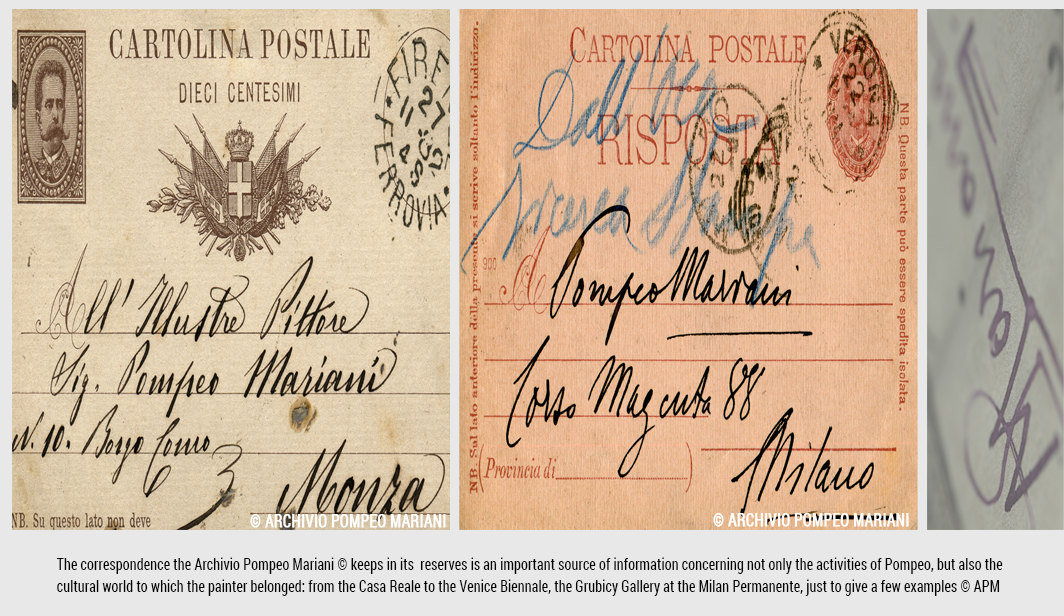 CARTOLINA POSTALE
DIECI CENTESIMI
FERROVIA
All' Illustre Pittore
Sig. Pompeo Mariani
N. 10. Borgo
Monza
NB. Su questo lato non deve
© ARCHIVIO POMPEO MARIANI
CARTOLINA POSTALE
RISPOSTA
VERONA
NB. Sul lato anteriore della presente si scrive soltanto l'indirizzo.
NB. Questa parte può essere spedita isolata.
A Pompeo Mariani
Corso Magenta 88
(Provincia di )
Milano
© ARCHIVIO POMPEO MARIANI
The correspondence the Archivio Pompeo Mariani © keeps in its reserves is an important source of information concerning not only the activities of Pompeo, but also the
cultural world to which the painter belonged: from the Casa Reale to the Venice Biennale, the Grubicy Gallery at the Milan Permanente, just to give a few examples © APM